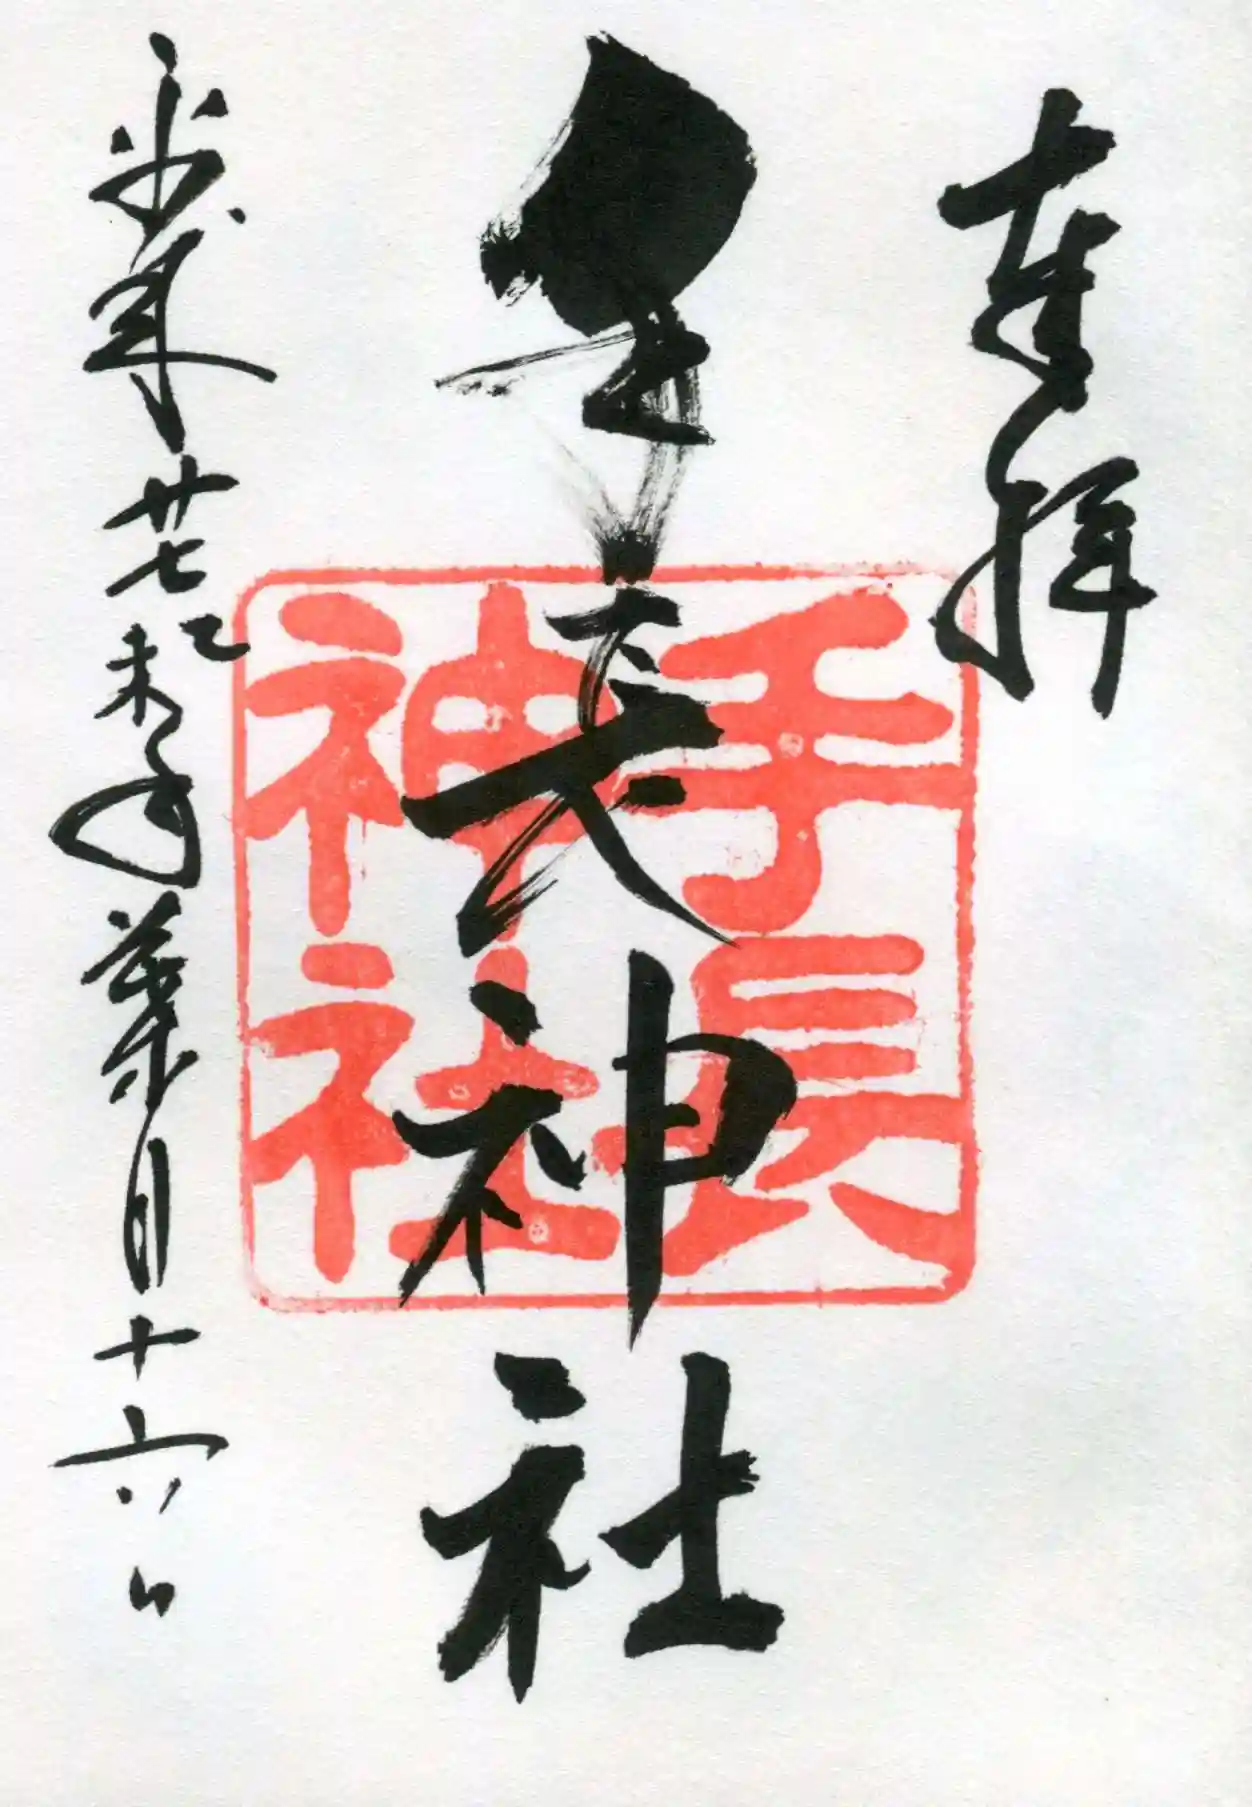 奉拝
手長神社
手長神社
平成廿七乙未年葉月十六日